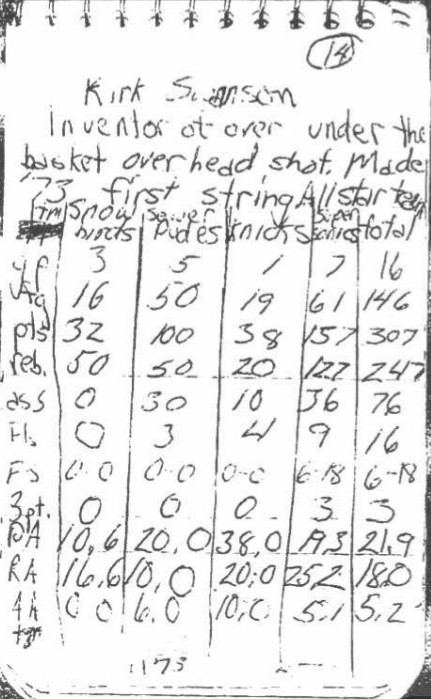 14
Kirk Swanson
Inventor of over under the
basket overhead shot. Made
'73 first string Allstar team
Tm Snow birds Sewer Rudes Knicks Super Sonics total
gp 3 5 1 7 16
fg 16 50 19 61 146
pts 32 100 38 157 307
reb. 50 50 20 127 247
ass 0 30 10 36 76
Fls 0 3 4 9 16
Fs 0-0 0-0 0-0 6-18 6-18
3pt. 0 0 0 3 3
PA 10,6 20,0 38,0 19,3 21,9
RA 16,6 10,0 20,0 25,2 18,0
AA 0 0 6.0 10,0 5.1 5.2
1173